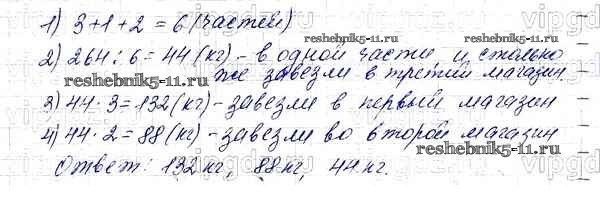 1) 3+1+2 = 6 (частей)
reshebnik5-11.ru
2) 264 : 6 = 44 (кг) - в одной части, и столько
же завезли в третий магазин.
reshebnik5-11.ru
3) 44 · 3 = 132 (кг) - завезли в первый магазин
4) 44 · 2 = 88 (кг) - завезли во второй магазин
reshebnik5-11.ru
Ответ: 132 кг, 88 кг, 44 кг.